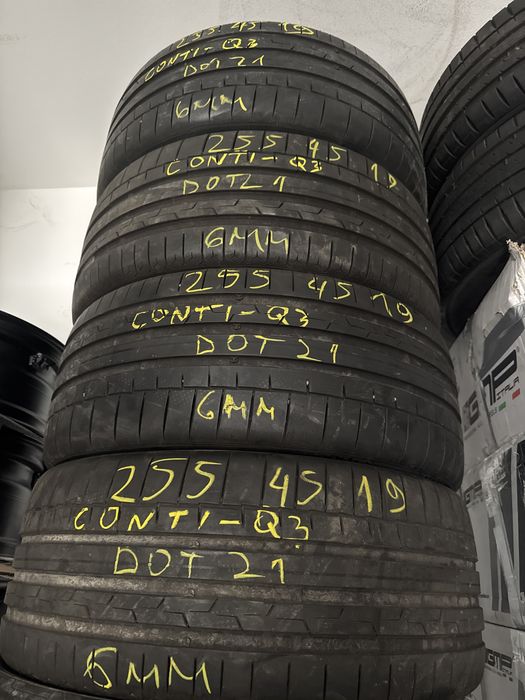 255 45 19
CONTI-Q3
DOT 21
6MM
255 45 19
CONTI-Q3
DOT21
6MM
255 45 19
CONTI-Q3
DOT 21
6MM
255 45 19
CONTI-Q3
DOT 21
6MM
ITALIA